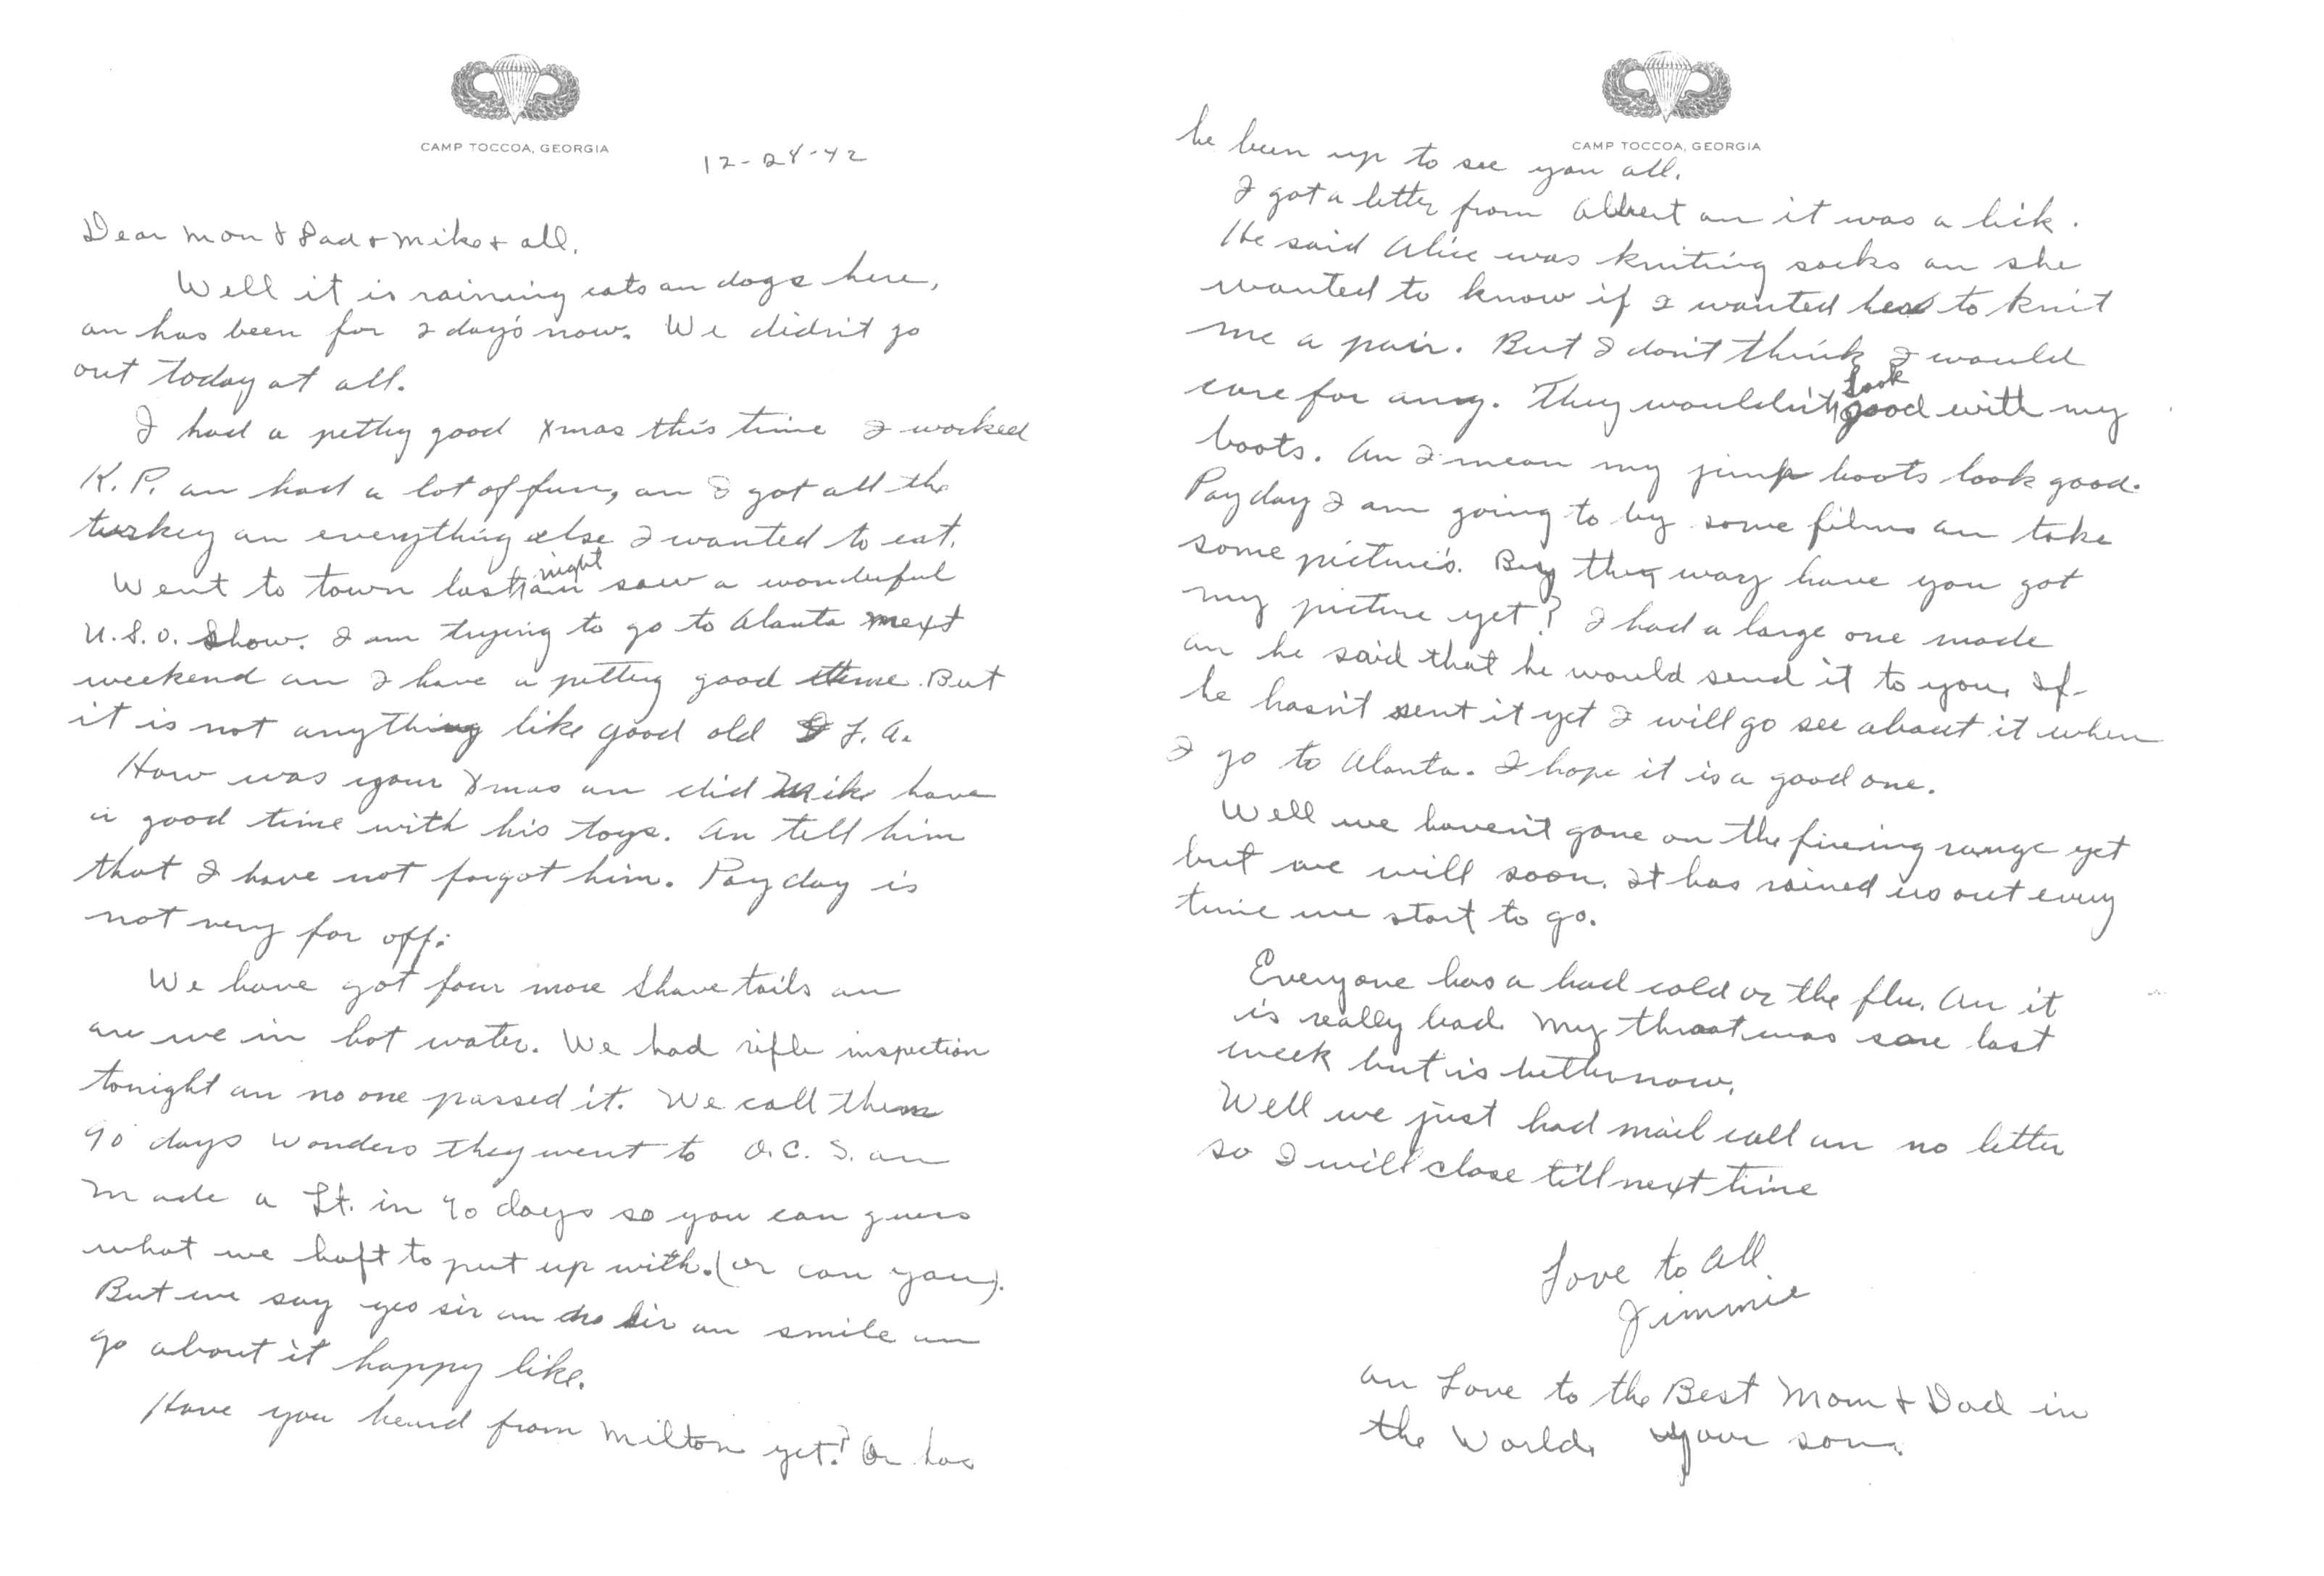 CAMP TOCCOA, GEORGIA
12-28-42
Dear Mom & Dad & Mike & all.
Well it is raining cats an dogs here,
an has been for 2 day's now. We didn't go
out today at all.
I had a pettey good Xmas this time I worked
K. P. an had a lot of fun, an I got all the
turkey an everything else I wanted to eat.
Went to town last night an saw a wonderful
U.S.O. Show. I am trying to go to Alanta next
weekend an I have a pettey good time. But
it is not anything like good old L. A.
How was your Xmas an did Mike have
a good time with his toys. An tell him
that I have not forgot him. Payday is
not very far off.
We have got four more Shave tails an
are we in hot water. We had rifle inspection
tonight an no one passed it. We call them
90 days wonders they went to O. C. S. an
made a Lt. in 90 days so you can guess
what we haft to put up with. (or can you).
But we say yes sir an no sir an smile an
go about it happy like.
Have you heard from Milton yet? Or has
CAMP TOCCOA, GEORGIA
he been up to see you all.
I got a letter from Albert an it was a
He said Alice was kniting socks an she
wanted to know if I wanted her to knit
me a pair. But I don't think I would
care for any. They wouldn't look good with my
boots. An I mean my jump boots look good.
Payday I am going to by some films an take
some picture's. By the way have you got
my picture yet? I had a large one made
an he said that he would send it to you. If
he hasn't sent it yet I will go see about it when
I go to Alanta. I hope it is a good one.
Well we haven't gone on the fireing range yet
but we will soon. It has rained us out every
time we start to go.
Everyone has a bad cold or the flu. An it
is really bad. My throat was sore last
week but is better now.
Well we just had mail call an no letter
so I will close till next time
Love to All
Jimmie
an Love to the Best Mom & Dad in
the World. Your son.